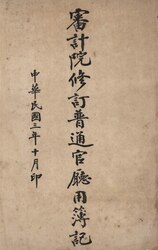 審計院修訂普通官廳用簿記
中華民國三年十月印